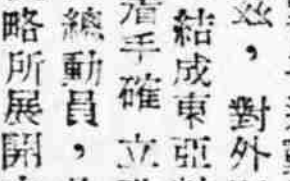 ，對外
結成東亞
着手確立
總動員，
略所展開